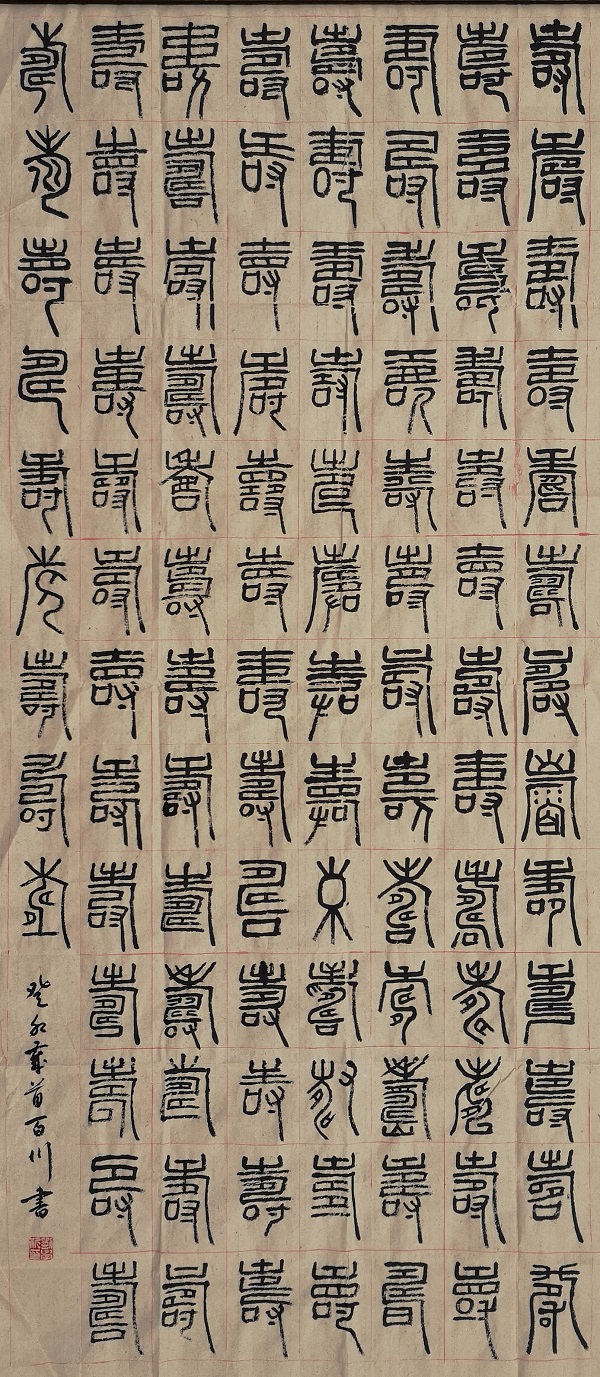 壽壽壽壽壽壽壽壽壽壽壽壽壽
壽壽壽壽壽壽壽壽壽壽壽壽壽
壽壽壽壽壽壽壽壽壽壽壽壽壽
壽壽壽壽壽壽壽壽壽壽壽壽壽
壽壽壽壽壽壽壽壽壽壽壽壽壽
壽壽壽壽壽壽壽壽壽壽壽壽壽
壽壽壽壽壽壽壽壽壽壽壽壽壽
壽壽壽壽壽壽壽壽壽
癸卯歲首百川書